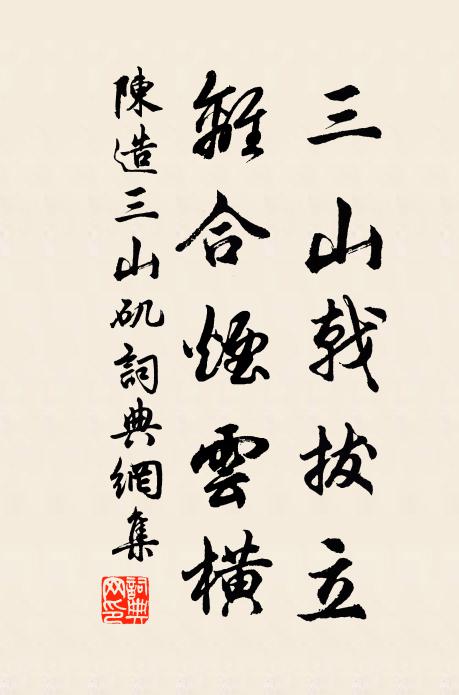 三山戟拔立
離合煙雲橫
陳造三山矶詞典網集
詞典網印